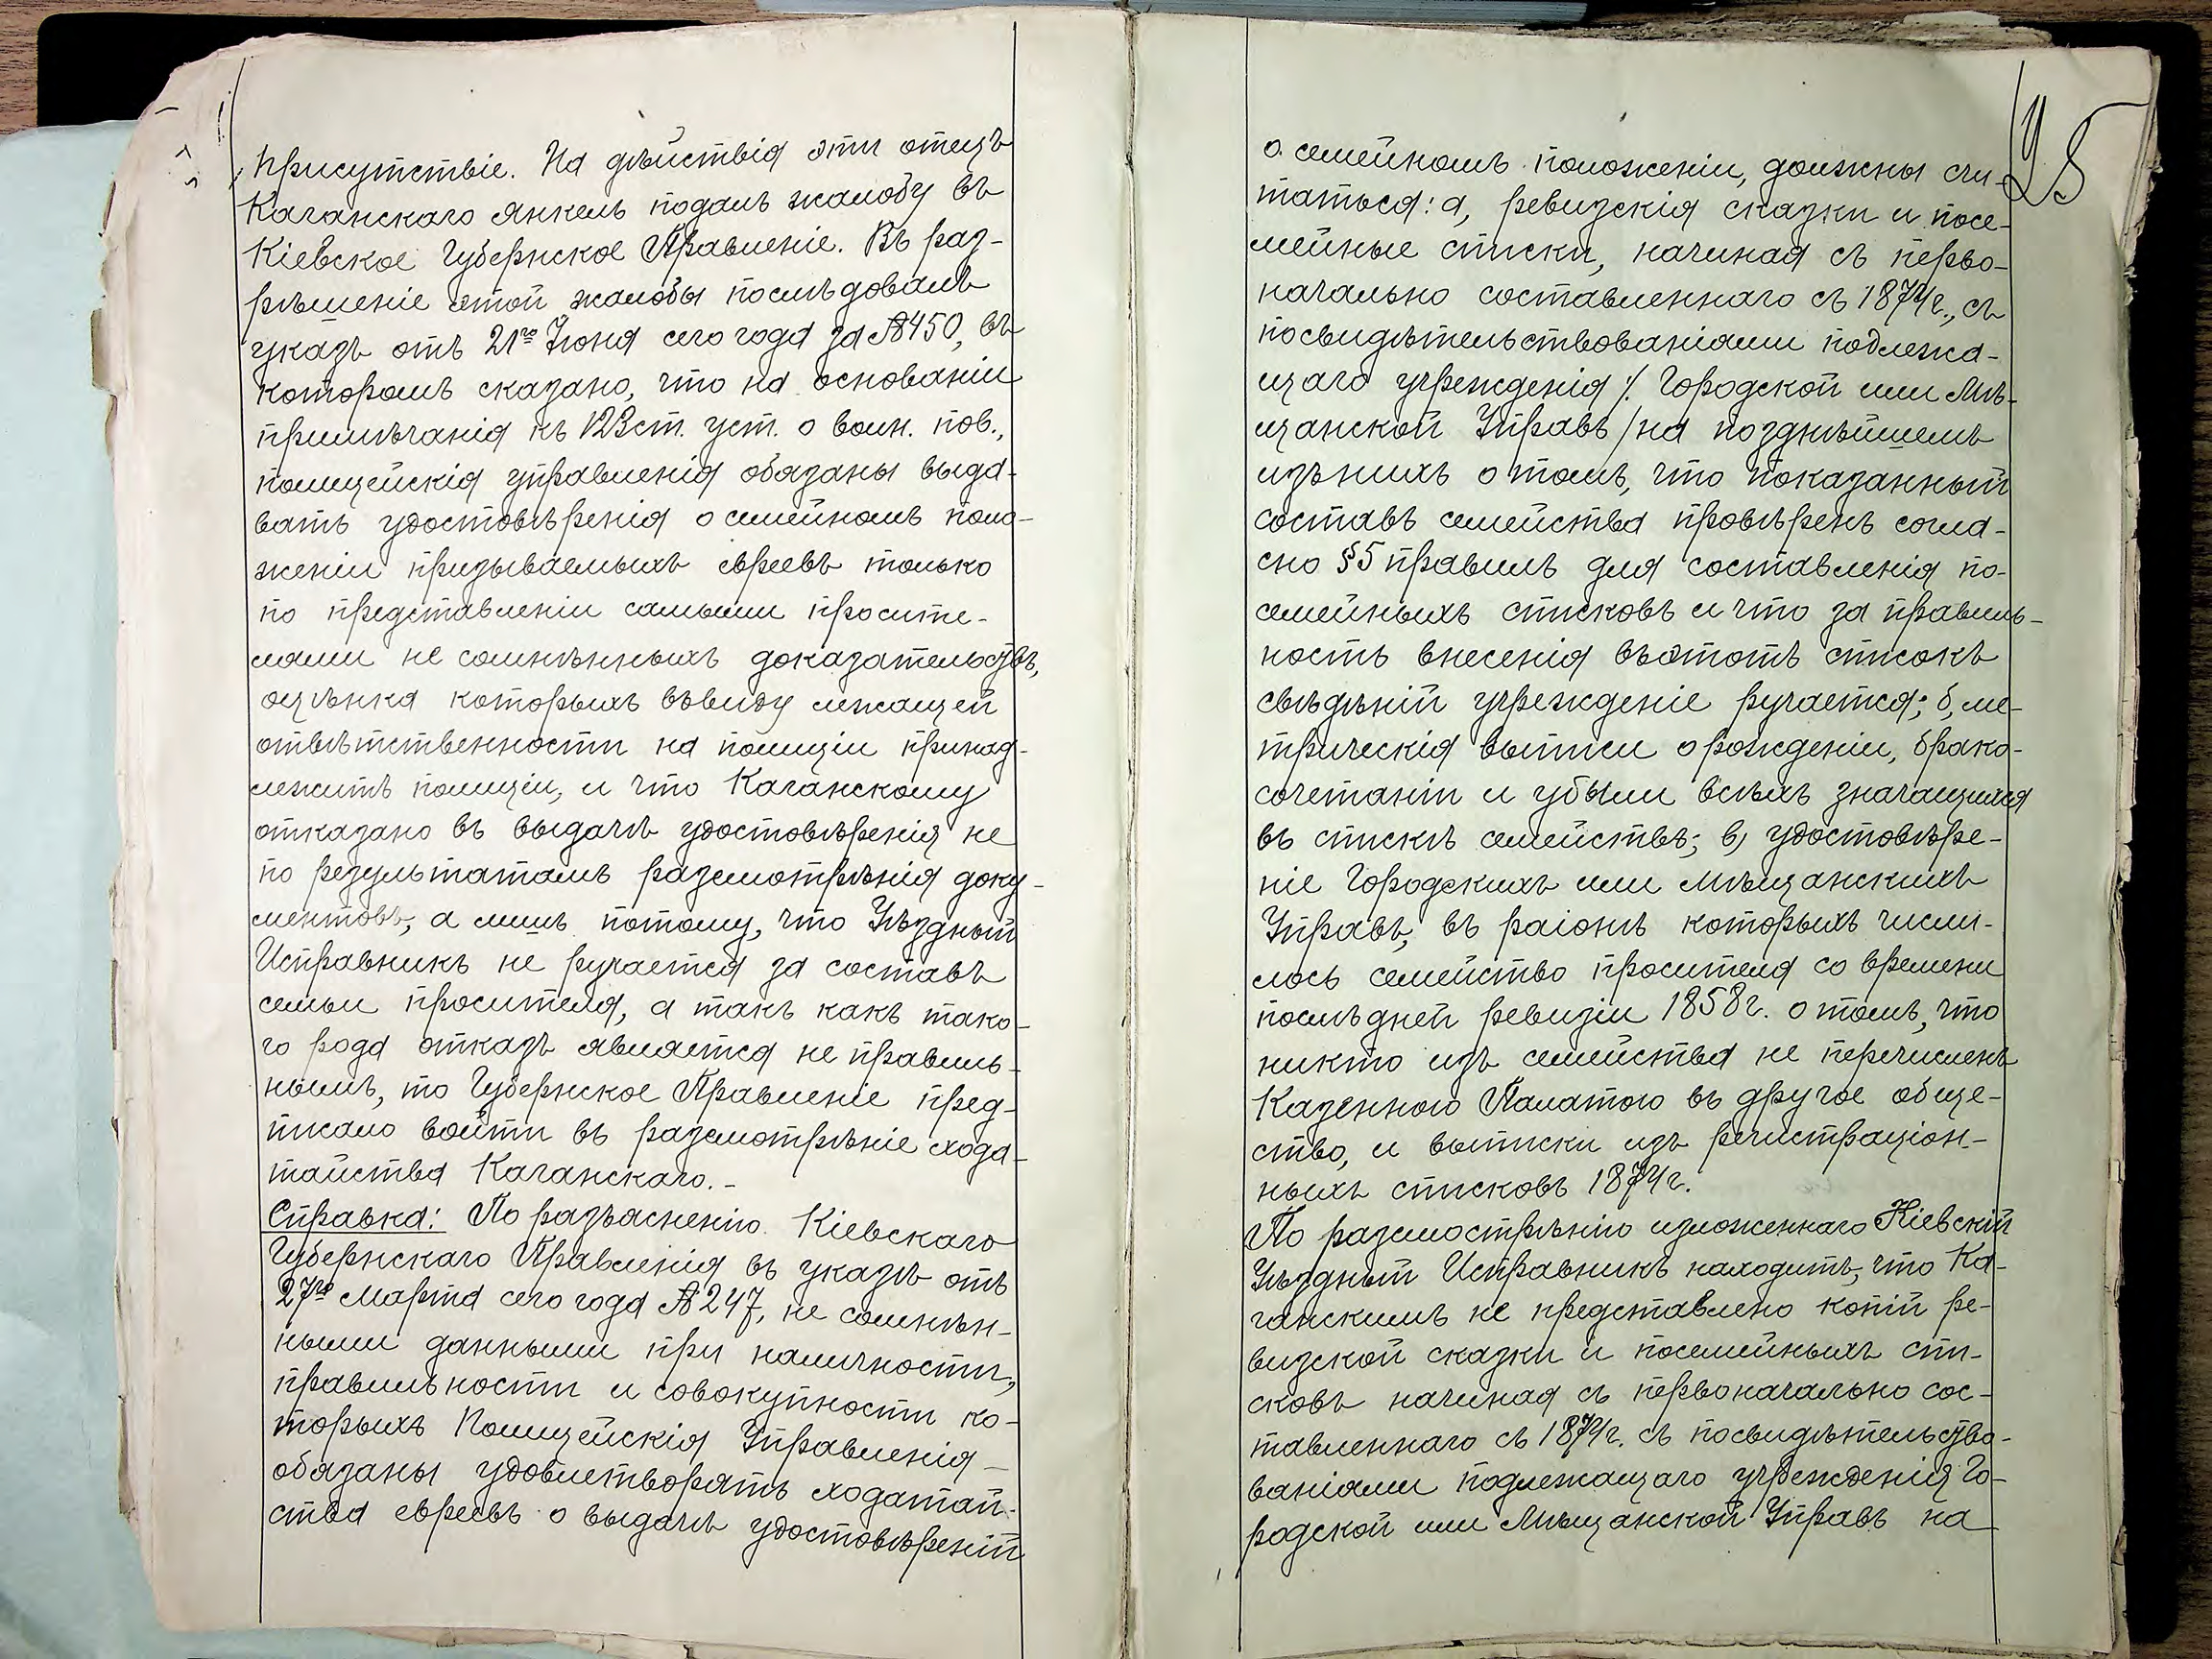 присутствіе. На дѣйствія эти отецъ
Каганскаго Янкель подалъ жалобу въ
Кіевское Губернское Правленіе. Въ раз-
рѣшеніе этой жалобы послѣдовалъ
указъ отъ 21го Іюня сего года за № 450, въ
которомъ сказано, что на основаніи
примѣчанія къ 123 ст. уст. о воин. пов.,
полицейскія управленія обязаны выда-
вать удостовѣренія о семейномъ поло-
женіи призываемыхъ евреевъ только
по представленіи самыми просите-
лями не сомнѣнныхъ доказательствъ,
оцѣнка которыхъ въ виду лежащей
отвѣтственности на полиціи принад-
лежитъ полиціи, и что Каганскому
отказано въ выдачѣ удостовѣренія не
по результатамъ разсмотрѣнія доку-
ментовъ, а лишь потому, что Уѣздный
Исправникъ не ручается за составъ
семьи просителя, а такъ какъ тако-
го рода отказъ является не правиль-
нымъ, то Губернское Правленіе пред-
писало войти въ разсмотрѣніе хода-
тайства Каганскаго.-
Справка: По разъясненію Кіевскаго
Губернскаго Правленія въ указѣ отъ
27го Марта сего года № 247, не сомнѣн-
ными данными при наличности,
правильности и совокупности ко-
торыхъ Полицейскія Управленія
обязаны удовлетворять ходатай-
ства евреевъ о выдачѣ удостовѣреній
25
о семейномъ положеніи, должны счи-
таться: а, ревизскія сказки и посе-
мейные списки, начиная съ перво-
начально составленнаго съ 1874 г., съ
посвидѣтельствованіями подлежа-
щаго учрежденія /. Городской или Мѣ-
щанской Управъ / на позднѣйшемъ
изъ нихъ о томъ, что показанный
составъ семейства провѣренъ согла-
сно §5 правилъ для составленія по-
семейныхъ списковъ и что за правиль-
ность внесенія въ этотъ списокъ
свѣдѣній учрежденіе ручается; б, ме-
трическія выписи о рожденіи, брако-
сочетаніи и убыли всѣхъ значащихся
въ спискѣ семействъ; в, удостовѣре-
ніе Городскихъ или Мѣщанскихъ
Управъ, въ раіонѣ которыхъ числи-
лось семейство просителя со времени
послѣдней ревизіи 1858 г. о томъ, что
никто изъ семейства не перечисленъ
Казенною Палатою въ другое обще-
ство, и выписки изъ регистраціон-
ныхъ списковъ 1874 г.
По разсмострѣнію изложеннаго Кіевскій
Уѣздный Исправникъ находитъ, что Ка-
ганскимъ не представлено копій ре-
визской сказки и посемейныхъ спи-
сковъ начиная съ первоначально сос-
тавленнаго съ 1874 г. съ посвидѣтельство-
ваніями подлежащаго учрежденія Го-
родской или Мѣщанской Управъ на